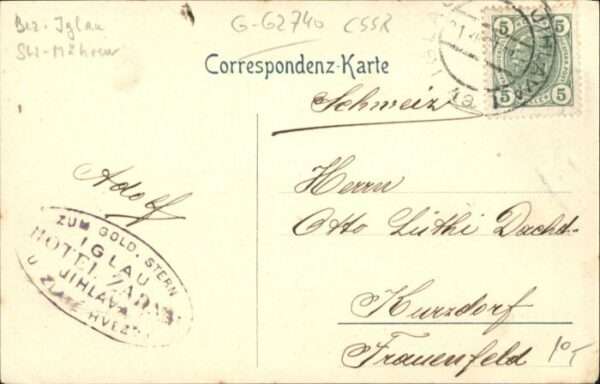 Bez. Iglau
G-G2740 CSSR
5 5
5 5
JIHLAVA
Correspondenz-Karte
Schweiz
Herrn
Adolf
Otto Lüthi Dachd-
ZUM GOLD. STERN
IGLAU
HOTEL
JIHLAVA
U ZLATÉ HVĚZDY
Kurzdorf
Frauenfeld